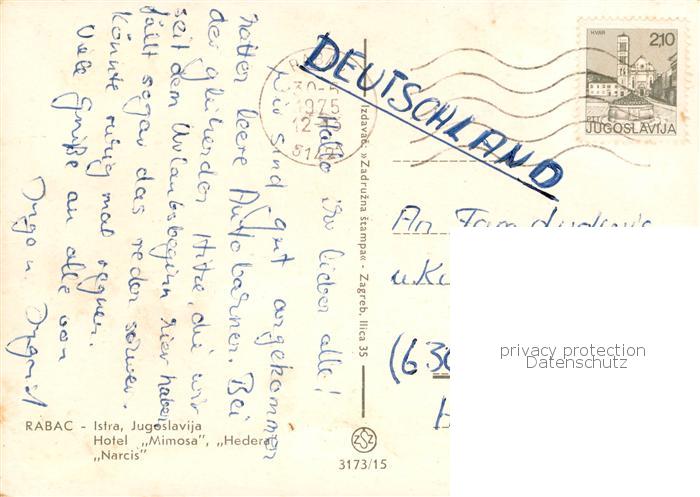 Hallo Ihr lieben alle!
Wir sind gut angekommen
hatten leere Autobahnen. Bei
der glühenden Hitze, die wir
seit dem Urlaubsbeginn hier haben
fällt sogar das reden schwer.
könnte ruhig mal regnen.
Viele Grüße an alle von
Ingo u. Ingrid
DEUTSCHLAND
HVAR
2,10
PTT
JUGOSLAVIJA
RABAC
1975
An Fam.
(630
privacy protection
Datenschutz
Izdavač: »Zadružna štampa« - Zagreb, Ilica 35
RABAC - Istra, Jugoslavija
Hotel „Mimosa", „Hedera",
„Narcis"
3173/15